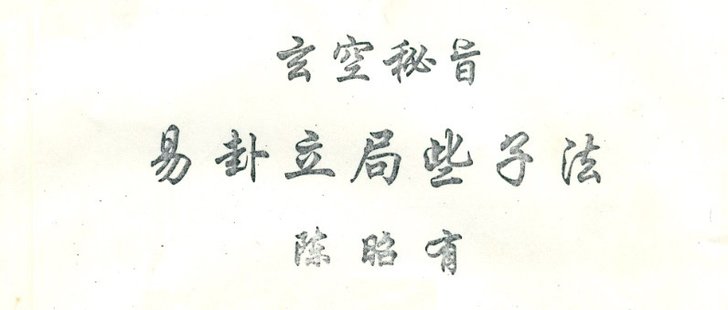 玄空秘旨
易卦立局些子法
陈昭有